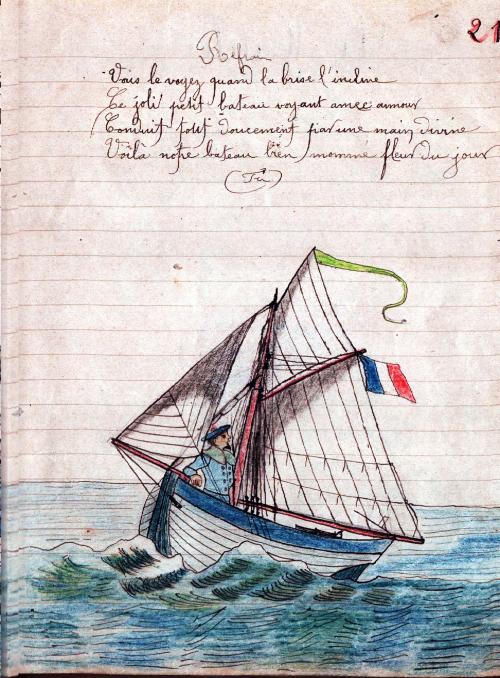 21
Refrain
Vous le voyez quand la brise l'incline
Le joli petit bateau voyant avec amour
Conduit tout doucement par une main divine
Voilà notre bateau bien nommé fleur du jour
Fin